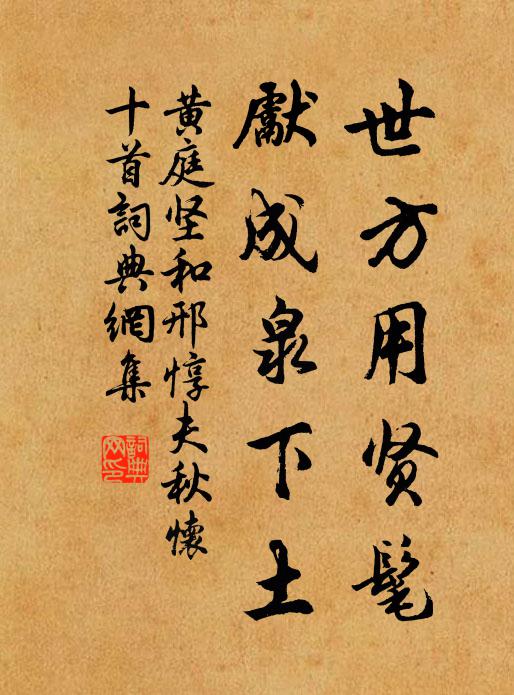 世方用贤髦
献成泉下土
黄庭坚和邢惇夫秋懷
十首詞典網集
詞典
网印